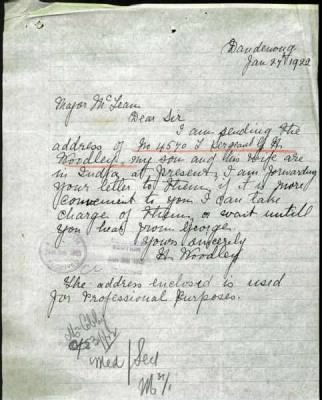 Dandenong
Jan 27th 1922
Major McLean
Dear Sir
I am sending the
address of No 4570 T Sergeant G. H.
Woodley, my son and his Wife are
in India at present, I am forwarding
your letter to them, if it is more
convenient to you I can take
charge of them, or wait untill
you hear from George.
Yours sincerely
H. Woodley
The address enclosed is used
for Professional Purposes.
Med / Sec